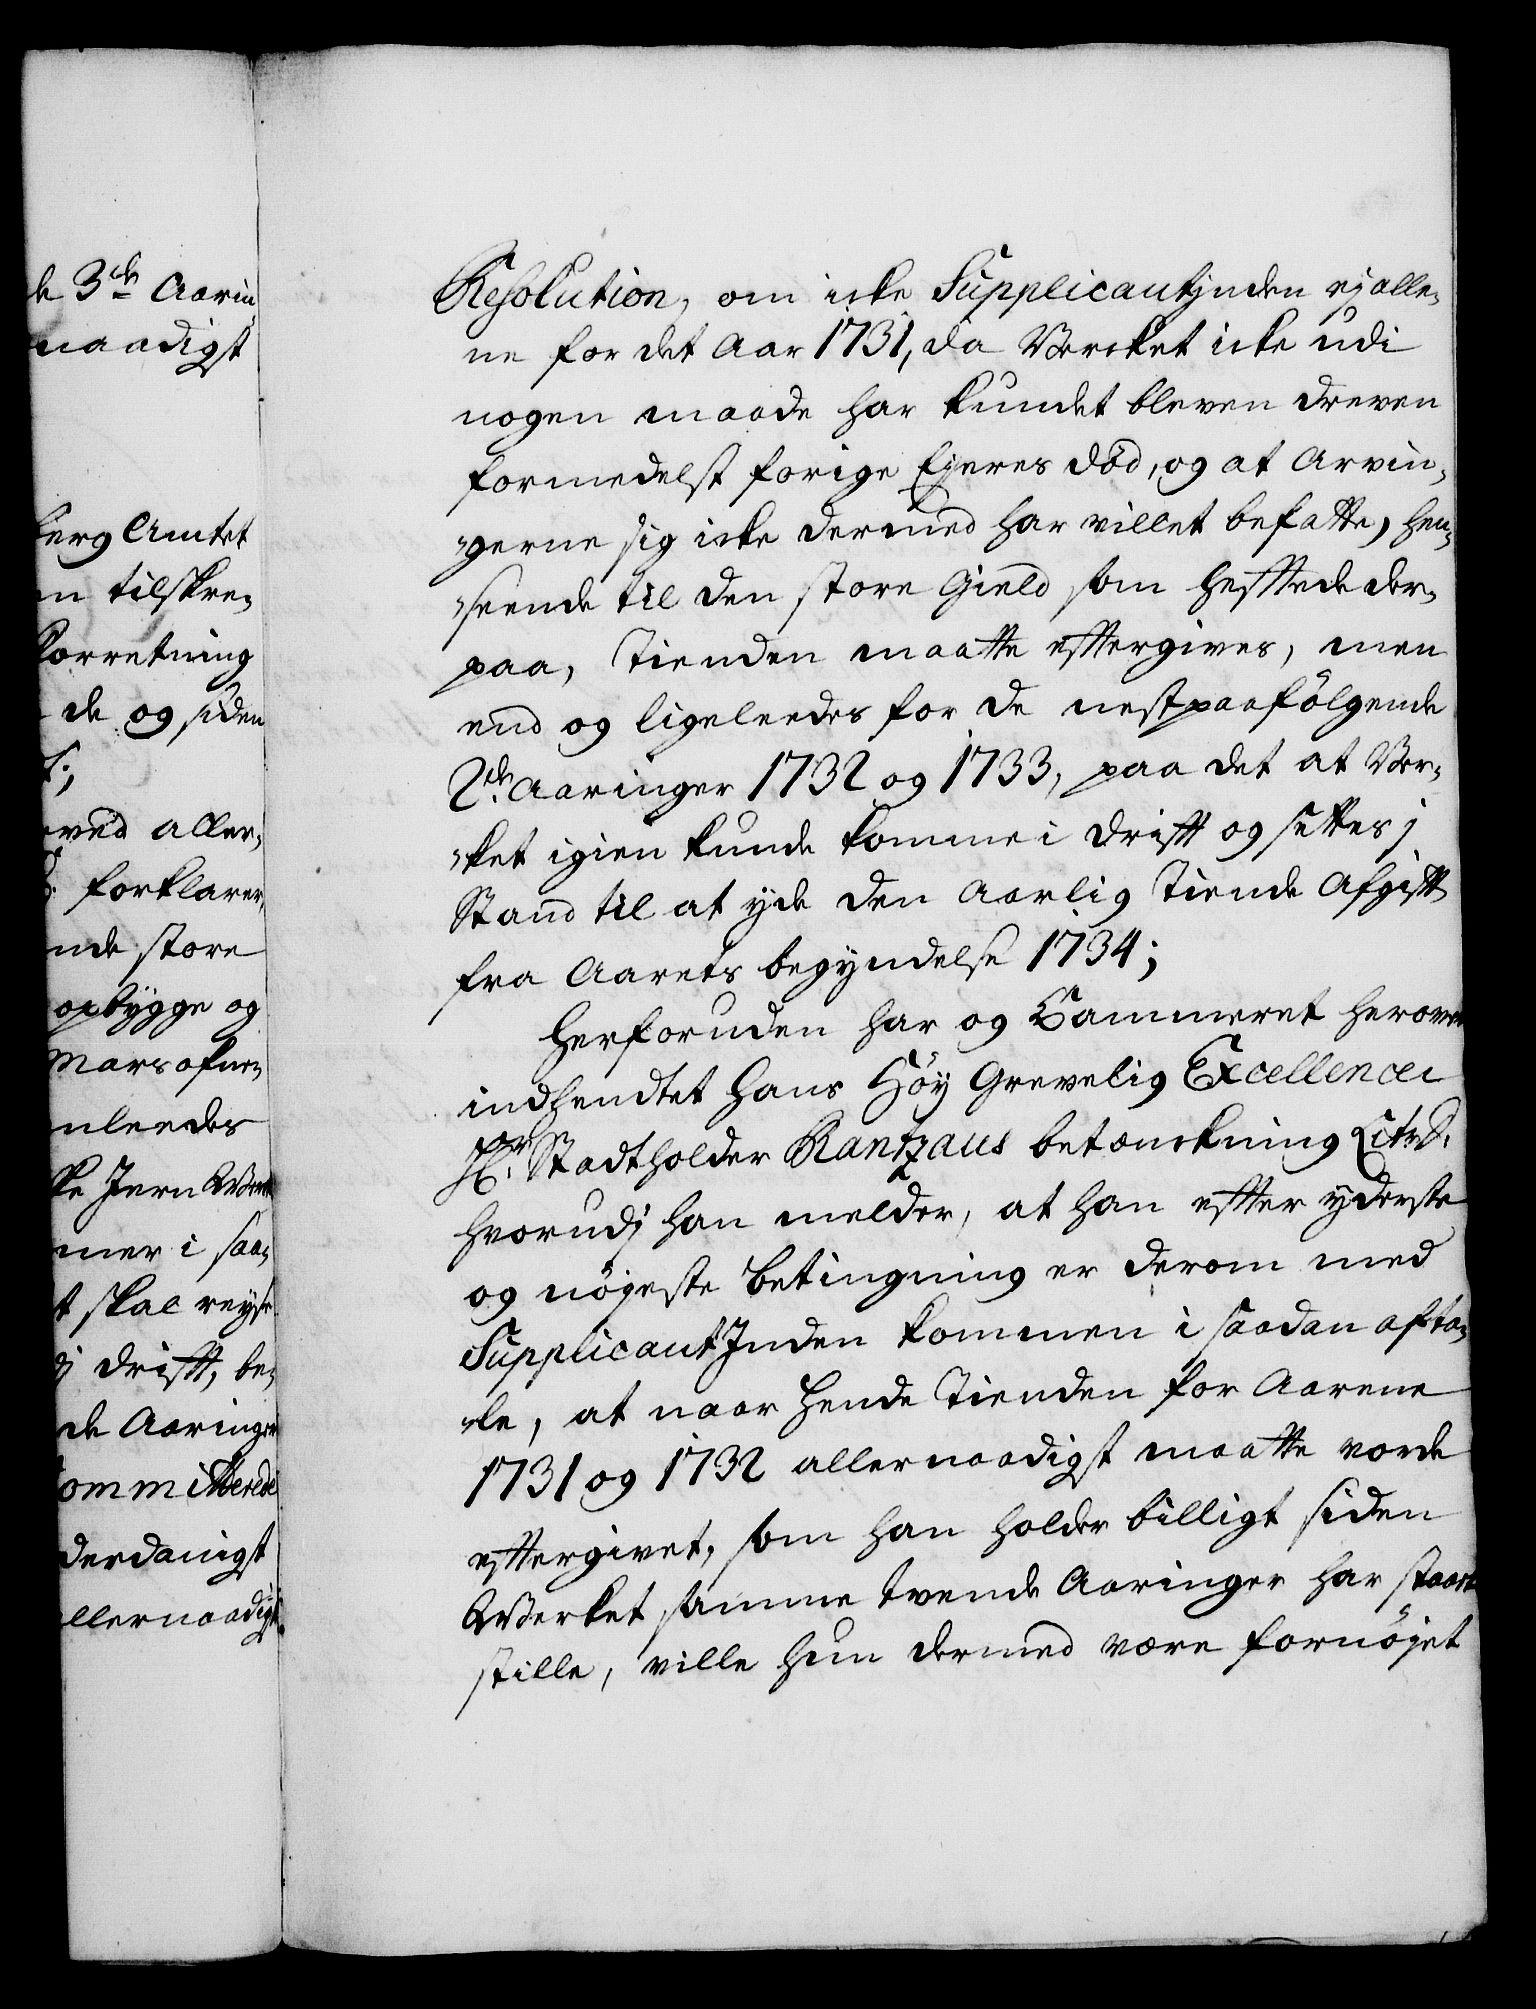 de 3de Aarin
naadigst
berg Amtet
en tilskre,
Forretning
de og siden
t;
rved aller,
forklarer,
nde store
opbÿgge og
Mars ofner,
nleedes
ke Jern Werk
mer i saa,
t skal reyse
j drifft, be,
de Aaringer
Committerede
derdanigst
llernaadigst
Resolution, om icke Supplicantjnden ej alle,
ne for det Aar 1731, da Vercket icke udi
nogen maade har kundet bleven dreven
formedelst forige Ejeres død, og at Arvin,
„gerne sig icke dermed har villet befatte, hen,
„seende til den store Gield som hefftede der,
paa, Tienden maatte efftergives, men
end og ligeleedes for de nestpaafølgende
2de Aaringer 1732 og 1733, paa det at Ver,
„ket igien kunde komme i drifft og settes j
Stand til at yde den Aarlig Tiende Afgifft
fra Aarets begyndelse 1734;
Herforuden har og Cammeret herover
indhendtet Hans Høy Grevelig Excellence
Hr. Stadtholder Rantzaus betænckning Litr. D.
hvorudj han melder, at han effter yderste
og nøjeste betingning er derom med
SupplicantJnden kommen i saadan afta,
„le, at naar Hende Tienden for Aarene
1731 og 1732 allernaadigst maatte vorde
efftergivet, som han holder billigt siden
Werket samme tvende Aaringer har staaet
stille, ville hun dermed være fornøjet